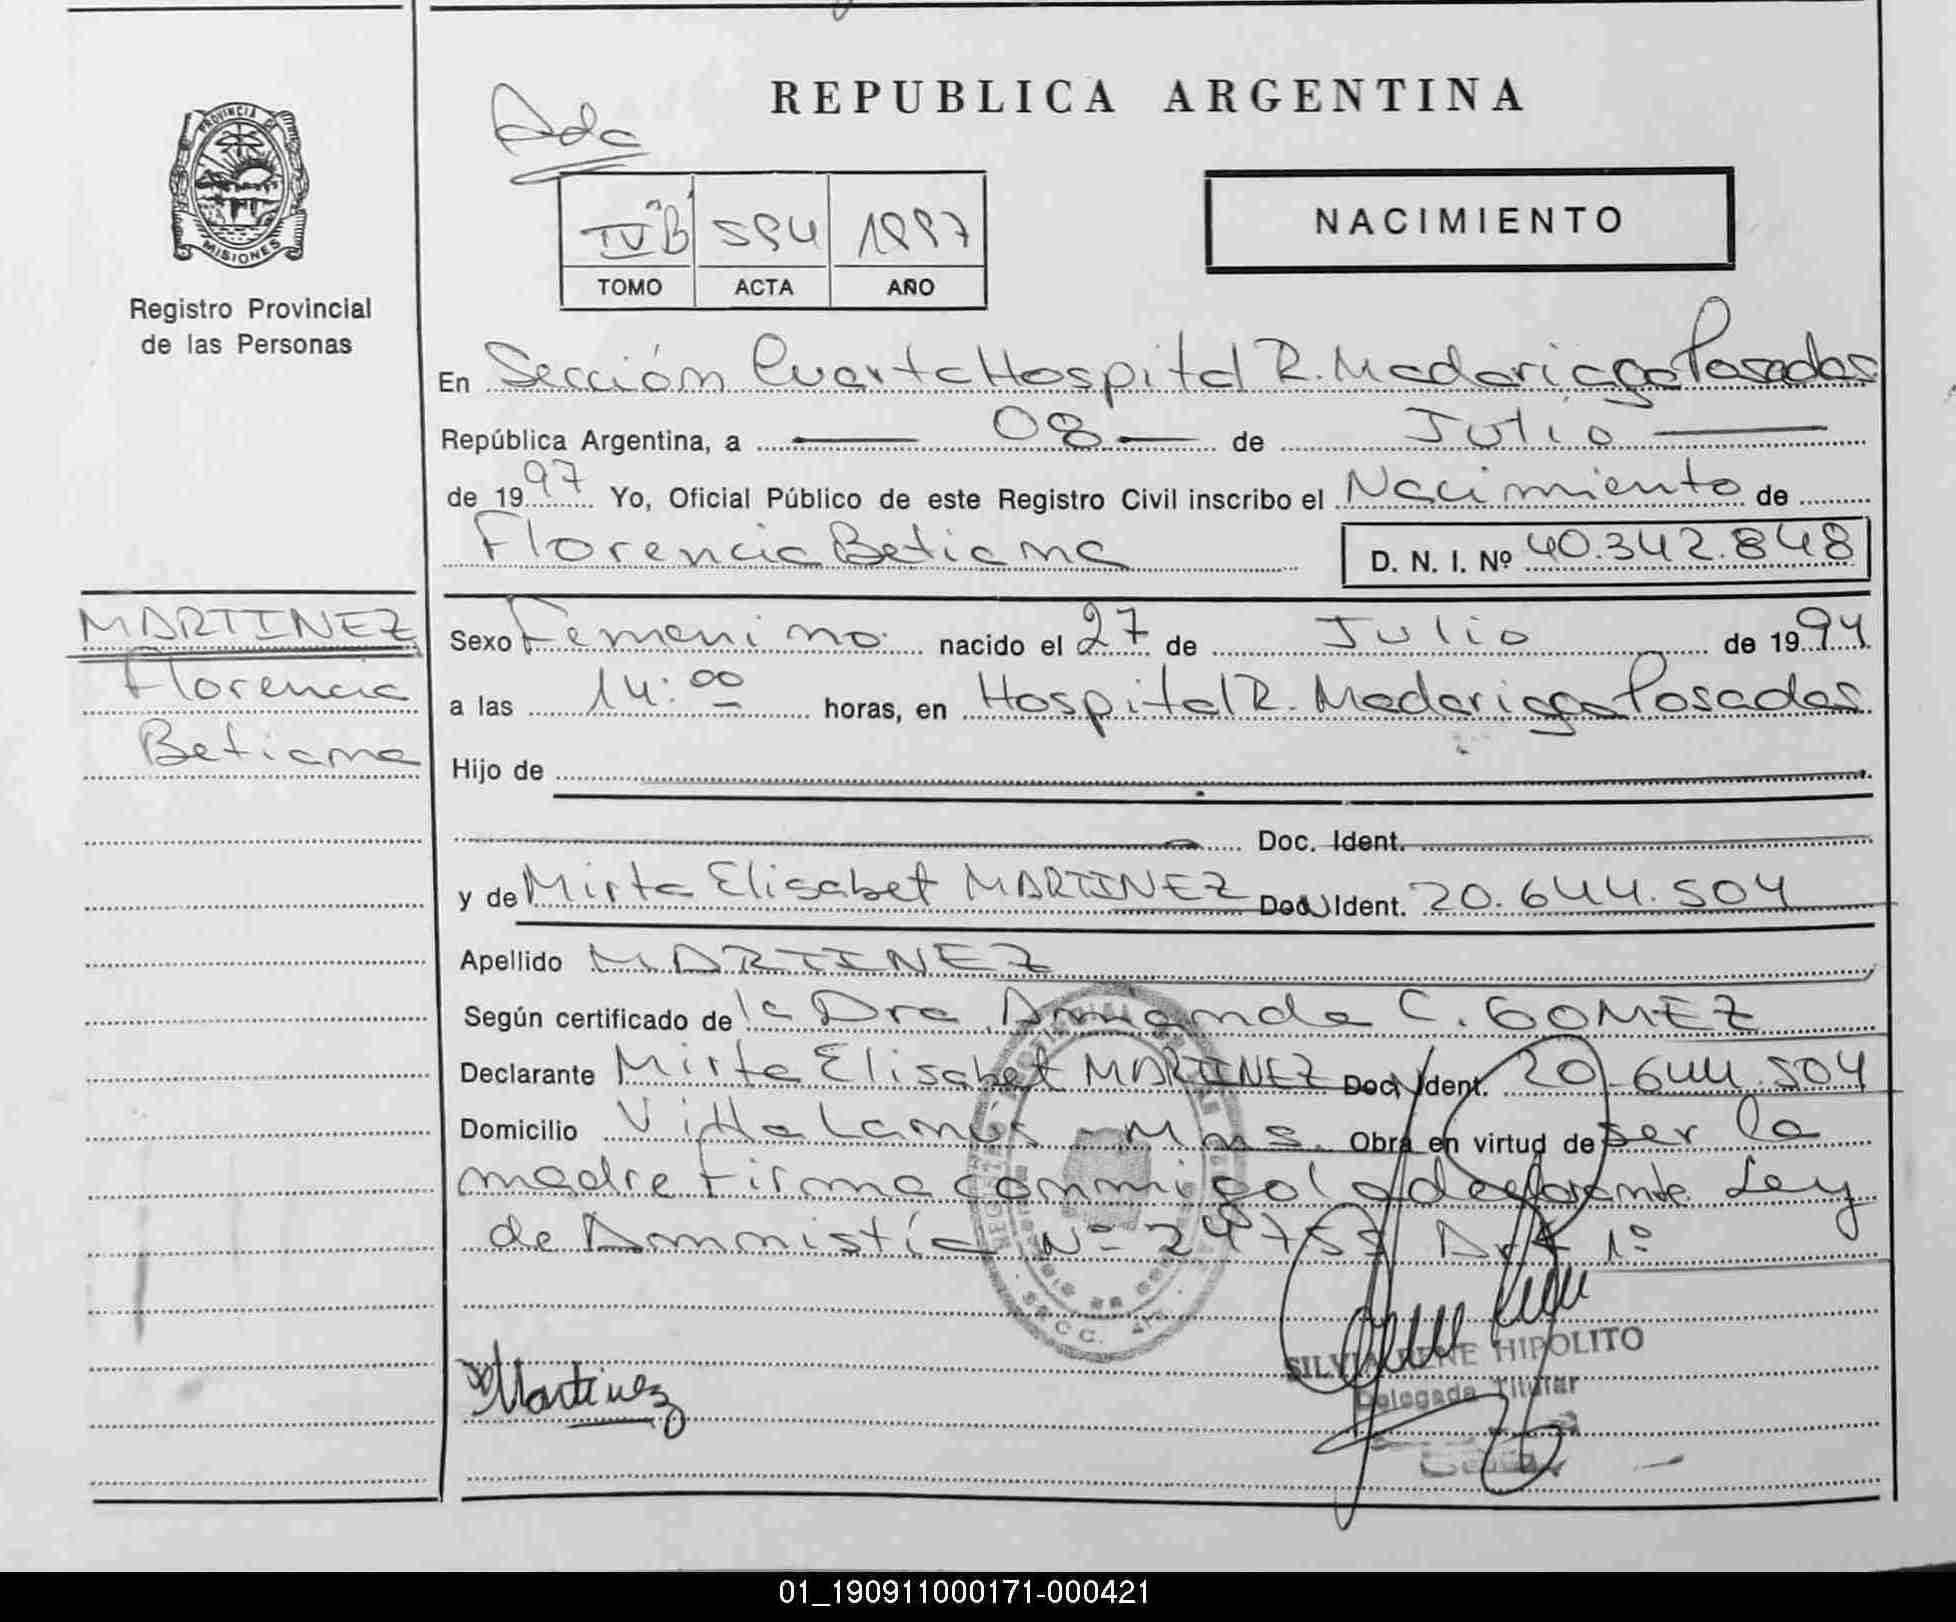 REPUBLICA ARGENTINA
PROVINCIA DE
MISIONES
Registro Provincial
de las Personas
Ada
IVºB 594 1997
TOMO ACTA AÑO
NACIMIENTO
En Sección Cuarta Hospital R. Madariaga Posadas
República Argentina, a 08 de Julio
de 1997 Yo, Oficial Público de este Registro Civil inscribo el Nacimiento de
Florencia Betiana D. N. I. Nº 40.342.848
MARTINEZ
Florencia
Betiana
Sexo Femenino nacido el 27 de Julio de 1994
a las 14:00 horas, en Hospital R. Madariaga Posadas
Hijo de
Doc. Ident.
y de Mirta Elisabet MARTINEZ Doc. Ident. 20.644.504
Apellido MARTINEZ
Según certificado de la Dra Amanda C. GOMEZ
Declarante Mirta Elisabet MARTINEZ Doc. Ident. 20.644.504
Domicilio Villa Lanús - Mnes. Obra en virtud de ser la
madre firma conmigo la Ley
de Ammistía Nº 24755 Art 1º
Martinez
SILVIA RENE HIPOLITO
Delegada Titular
01_190911000171-000421